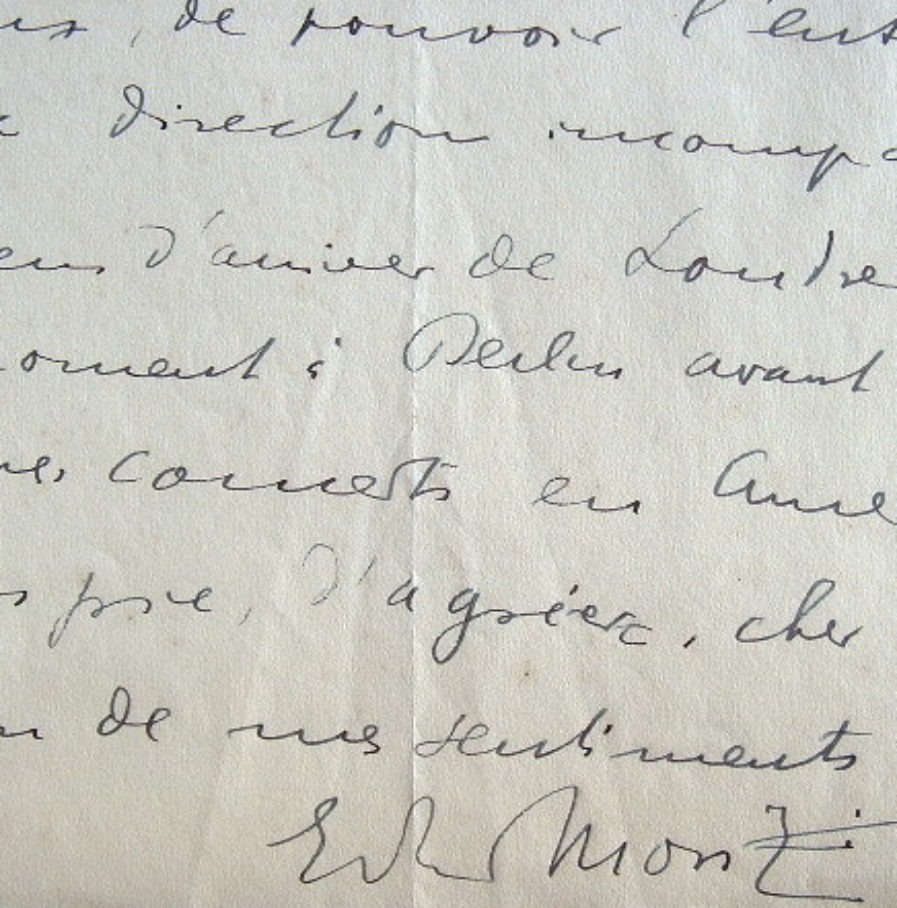 us, de pouvoir l'ent
direction incompa
ens d'arriver de Londre
moment à Berlin avant
mes concerts en Amé
s prie, d'agréer, cher
n de mes sentiments